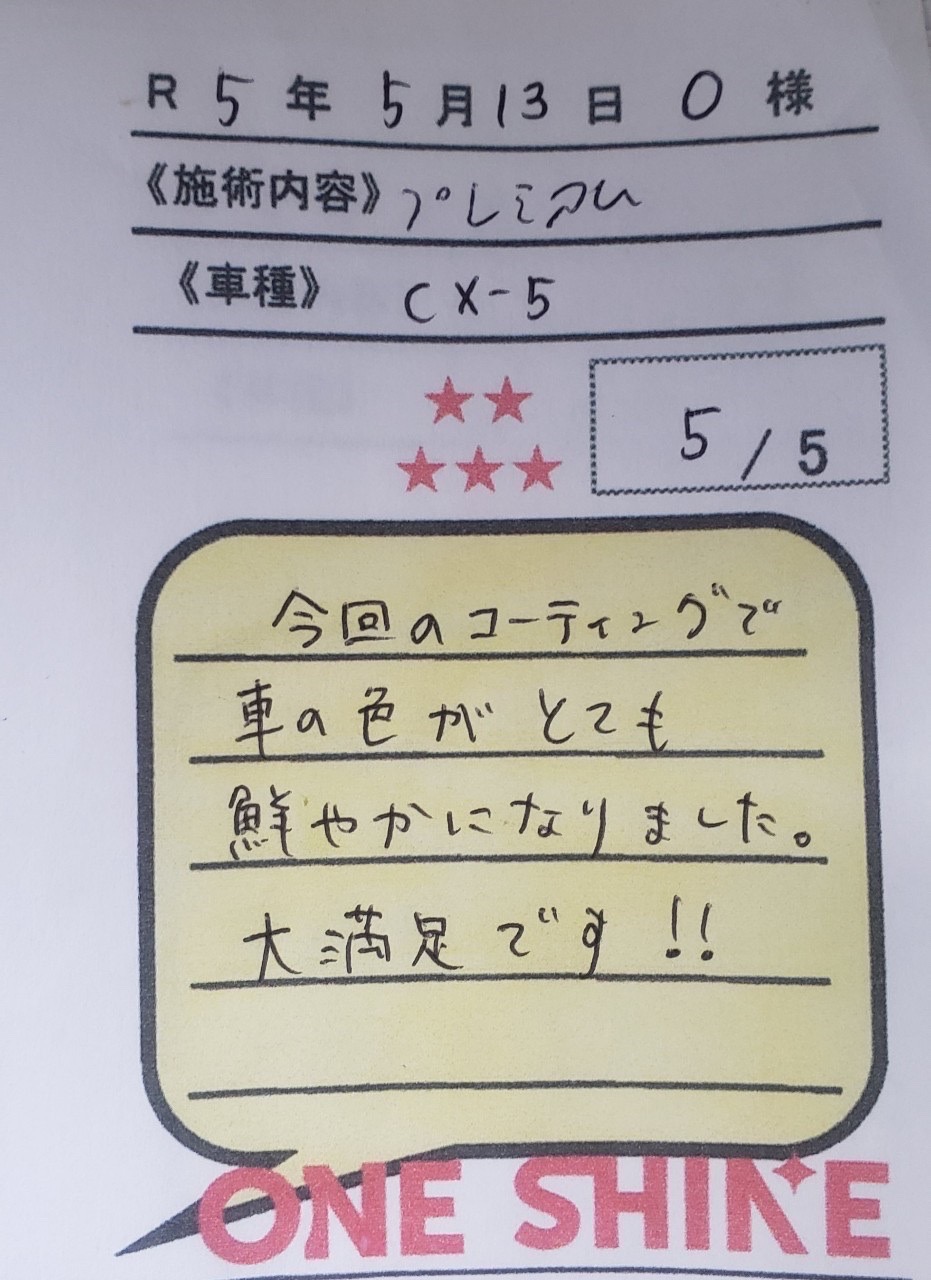 R 5 年 5 月 13 日 O 様
《施術内容》プレミアム
《車種》 CX-5
★★
★★★
5 / 5
今回のコーティングで
車の色がとても
鮮やかになりました。
大満足です!!
ONE SHINE